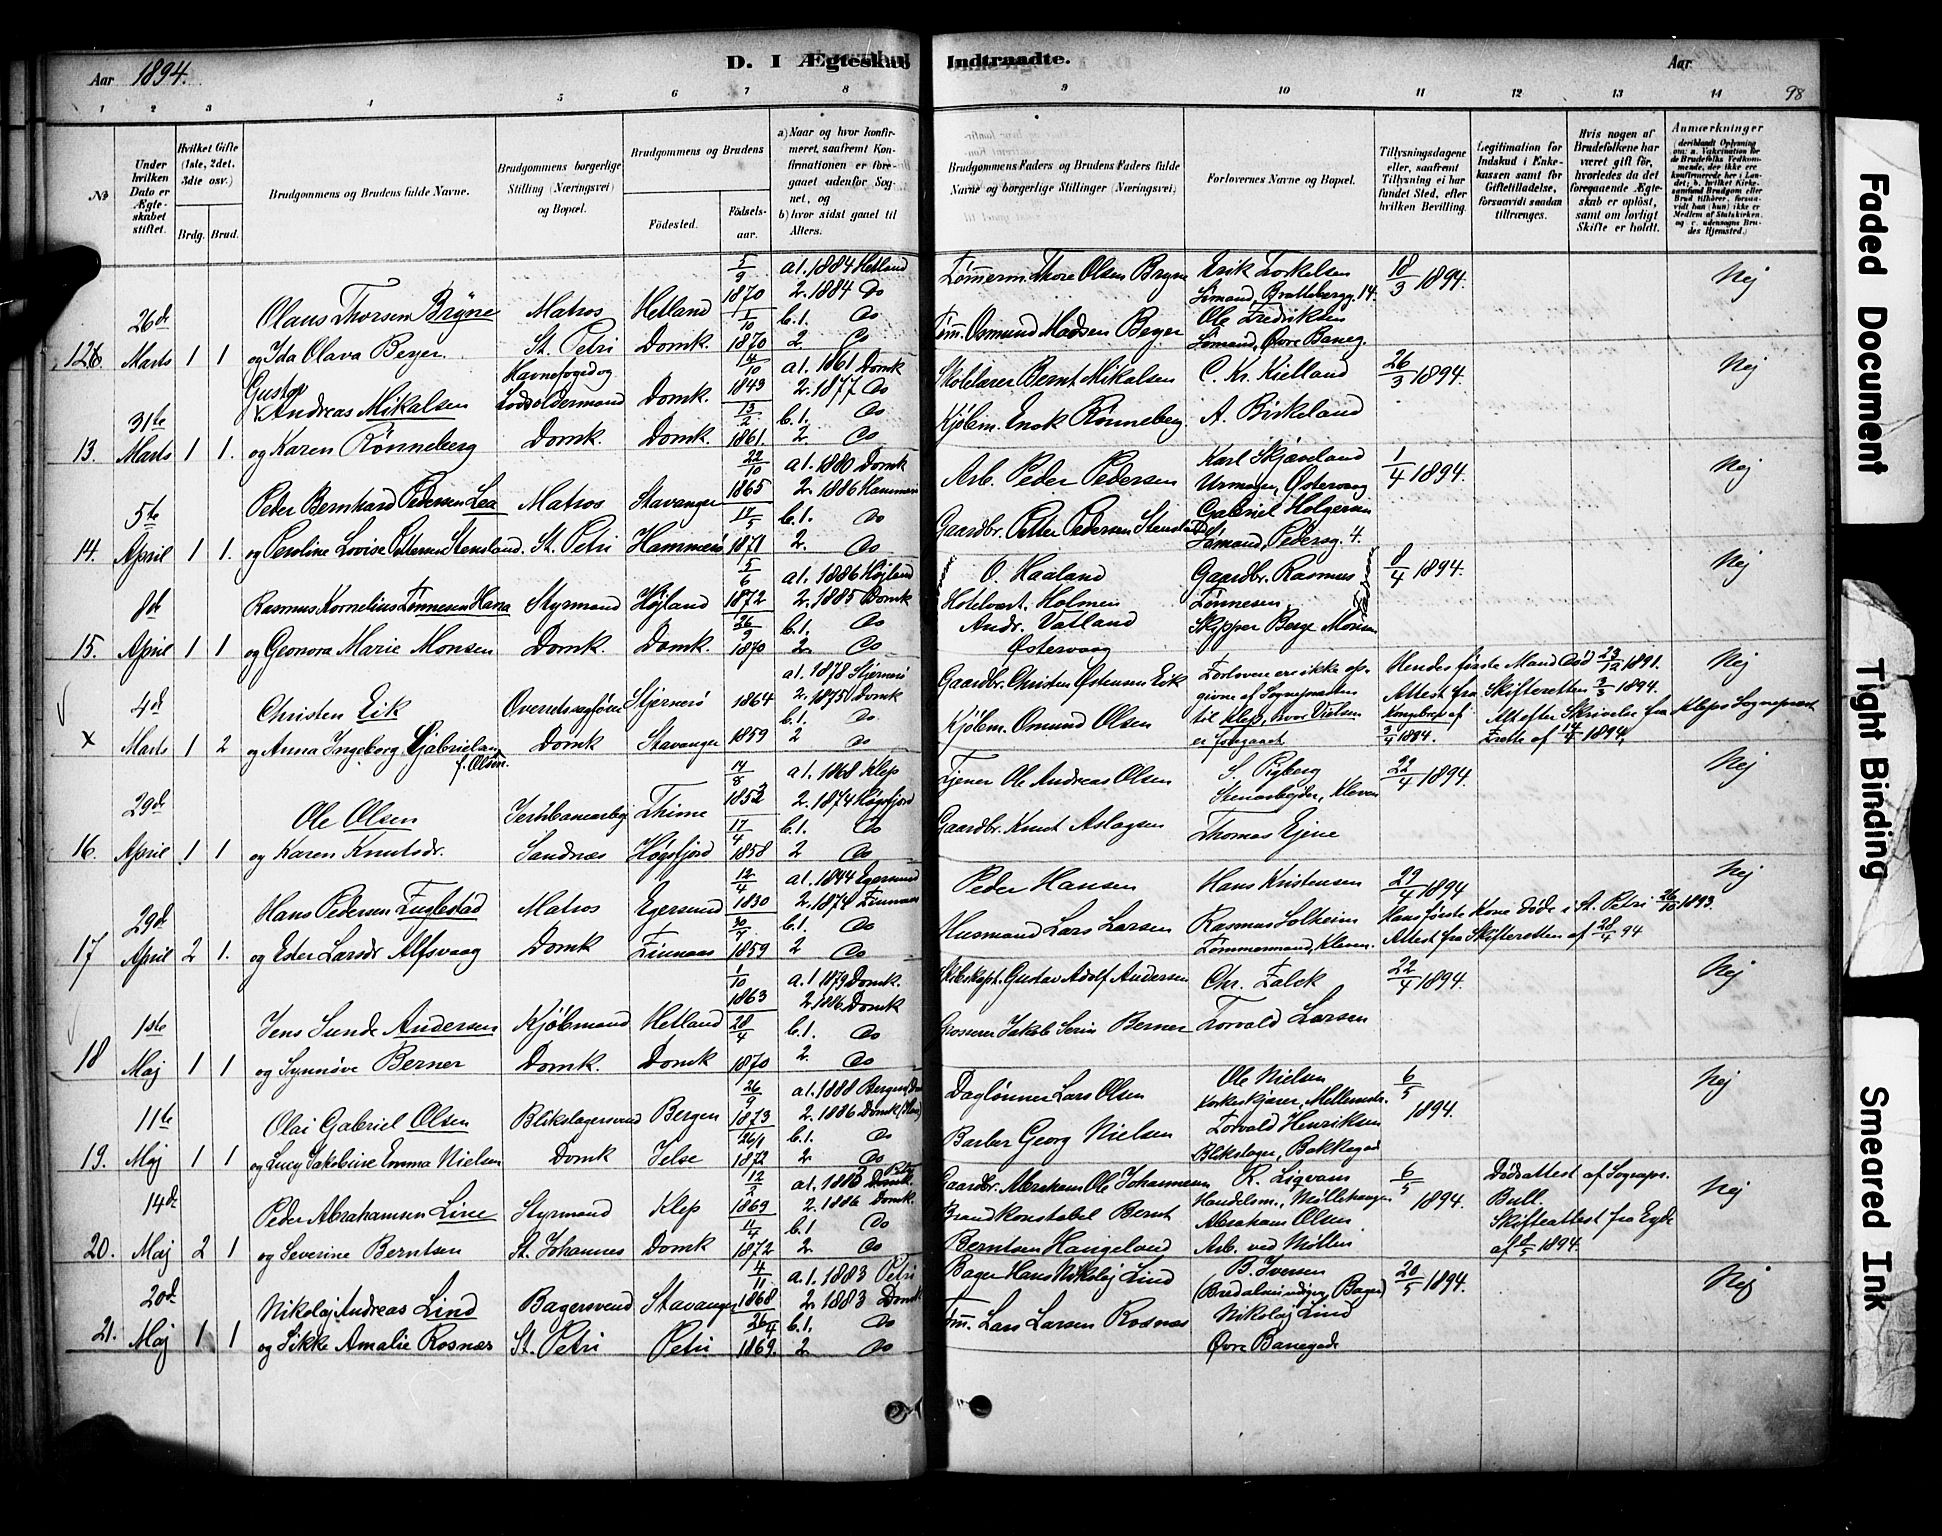 Aar 1894.
D. I Ægteskab Indtraadte.
Aar
98
1 2 3 4 5 6 7 8 9 10 11 12 13 14
No
Under hvilken Dato er Ægteskabet stiftet.
Hvilket Gifte (1ste, 2det, 3die osv.)
Brdg. Brud.
Brudgommens og Brudens fulde Navne.
Brudgommens borgerlige Stilling (Næringsvei) og Bopæl.
Brudgommens og Brudens
Födested.
Födsels-aar.
a) Naar og hvor konfirmeret, saafremt Konfirmationen er foregaaet udenfor Sognet, og
b) hvor sidst gaaet til Alters.
Brudgommens Faders og Brudens Faders fulde Navne og borgerlige Stillinger (Næringsvei).
Forlovernes Navne og Bopæl.
Tillysningsdagene eller, saafremt Tillysning ei har fundet Sted, efter hvilken Bevilling.
Legitimation for Indskud i Enkekassen samt for Giftetilladelse, forsaavidt saadan tiltrænges.
Hvis nogen af Brudefolkene har været gift før, hvorledes da det foregaaende Ægteskab er opløst, samt om lovligt Skifte er holdt.
Anmærkninger
12 26de Marts 1 1
Olaus Thorsen Bryne Matros Hetland 5/9 1870 a1. 1884 Hetland
og Ida Olava Berger St. Petri Domk. 1/10 1870 2. 1884 Do
b.1. Do
2 Do
Tömmerm. Thore Olsen Bryne
Töm. Osmund Madsen Berger
Erik Torkelsen
Sömand, Bratteberg. 14.
Ole Fredriksen
Sömand, Øvre Baneg.
18/3 1894. Nej
13. 31te Marts 1 1.
Gustav Andreas Mikalsen Havnefoged og Lodsoldermand Domk. 4/10 1843 a1. 1861 Domk
og Karen Rönneberg Domk. Domk. 13/2 1861. 2. 1877 Do
b.1. Do
2. Do
Skolelærer Bernt Mikalsen
Kjöbm. Enok Rönneberg
C. Kr. Kielland
A. Birkeland
26/3 1894. Nej
14. 5te April 1 1.
Peder Bernhard Pedersen Lea Matros Stavanger 22/10 1865 a1. 1880 Domk
og Peroline Lovise Pettersen Stensland. St. Petri Hammerö 17/5 1871 2. 1886 Hammerö
b.1. Do
2. Do
Arb. Peder Pedersen
Gaardbr. Petter Pedersen Stensland
Karl Skjæveland
Urmager, Østervaag
Gabriel Holgersen
Sömand, Pedersg. 4.
1/4 1894. Nej
15. 8de April 1 1
Rasmus Kornelius Tönnesen Hana Styrmand Höjland 5/6 1872 a1. 1886 Höjland
og Geonora Marie Monsen Domk. Domk. 26/9 1870 2. 1885 Domk
b.1. Do
2. Do
O. Haaland
Hotelvært. Holmen
Andr. Vatland
Østervaag
Gaardbr. Rasmus
Tönnesen,
Skipper Berge Monsen
8/4 1894. Nej
x 4de Marts 1 2
Christen Eik Overretssagförer Stjernerö 1864 a1. 1878 Stjernerö
og Anna Ingeborg Gabrielsen f. Olsen. Domk Stavanger 1859 2. 1875 Domk
b.1. Do
2 Do
Gaardbr. Christen Østensen Eik
Kjöbm. Osmund Olsen
Forlovere ere ikke opgivne af Sognepresten til Klep, hvor Vielsen er foregaaet
Hendes förste Mand död 23/2 1891.
Attest fra Skifteretten 2/3 1894.
Kongebrev af 2/4 1894.
Alt efter Skrivelse fra Kleps Sogneprest
Trette af 14/4 1894.
Nej
16. 29de April 1 1
Ole Olsen Jernbanearbej Thime 14/8 1852 a1. 1868 Klep
og Karen Knutsdr. Sandnæs Högsfjord 17/4 1858 2. 1874 Högsfjord
b.1. Do
2 Do
Tjener Ole Andreas Olsen
Gaardbr. Knut Aslagsen
S. Pigberg
Stenarbejder, Kleven
Thomas Ejene
22/4 1894. Nej
17 29de April 2 1.
Hans Pedersen Fuglestad Matros Egersund 12/4 1830 a1. 1844 Egersund
og Ester Larsdr Alfsvaag Domk Finnaas 30/7 1859 2. 1874 Finnaas
b.1. Do
2 Do
Peder Hansen
Husmand Lars Larsen
Hans Kristensen
Rasmus Solheim
Tömmermand, Kleven.
29/4 1894
Hans förste Kone döde i St. Petri 26/10 1893.
Attest fra Skifteretten af 28/4 94
Nej
18 1ste Maj 1 1
Jens Sunde Andersen Kjöbmand Hetland 1/10 1863 a.1 1879 Domk.
og Synnöve Berner Domk. Domk 28/4 1870 2. 1886 Domk
b.1. Do
2. Do
Skibskapt. Gustav Adolf Andersen
Grosserer Jakob Serin Berner
Chr. Falck
Torvald Larsen
22/4 1894. Nej
19. 11te Maj 1 1
Olai Gabriel Olsen Blikslagersvend Bergen 26/9 1873 a1. 1888 Bergens
og Lucy Jakobine Emma Nielsen Domk Jelse 26/1 1872 2. 1886 Domk
b.1. Do
2. Do
Daglönner Lars Olsen
Barber Georg Nielsen
Ole Nielsen
Korkeskjærer, Mellemstr.
Torvald Henriksen
Blikslager, Bakkegad
6/5 1894. Nej
20. 14de Maj 2 1
Peder Abrahamsen Line Styrmand Klep 12/2 1869 a1. 1883 Petri
og Severine Berntsen St. Johannes Domk 11/4 1872 2. 1886 Domk
b.1 Do
2. Do
Gaardbr. Abraham Ole Johannesen
Brandkonstabel Bernt
Berntsen Haugelved
R. Ligvam
Handelsm., Möllehaugen
Abraham Olsen
Arb. ved Möllen
6/5 1894.
Dödsattest af Sognepr. Bull.
Skifteattest fra Egde
af 8/5 1894.
Nej
21. 20de Maj 1 1
Nikolaj Andreas Lind Bagersvend Stavanger 4/11 1868 a.1. 1883 Petri
og Sikke Amalie Rosnæs St. Petri Petri 26/4 1869. 2. 1883 Domk
b.1. Do
2 Do
Bager Hans Nikolaj Lind
Töm. Lars Larsen Rosnæs
B. Iversen
Nikolaj Lind
Øvre Banegade
20/5 1894. Nej
Faded Document
Tight Binding
Smeared Ink